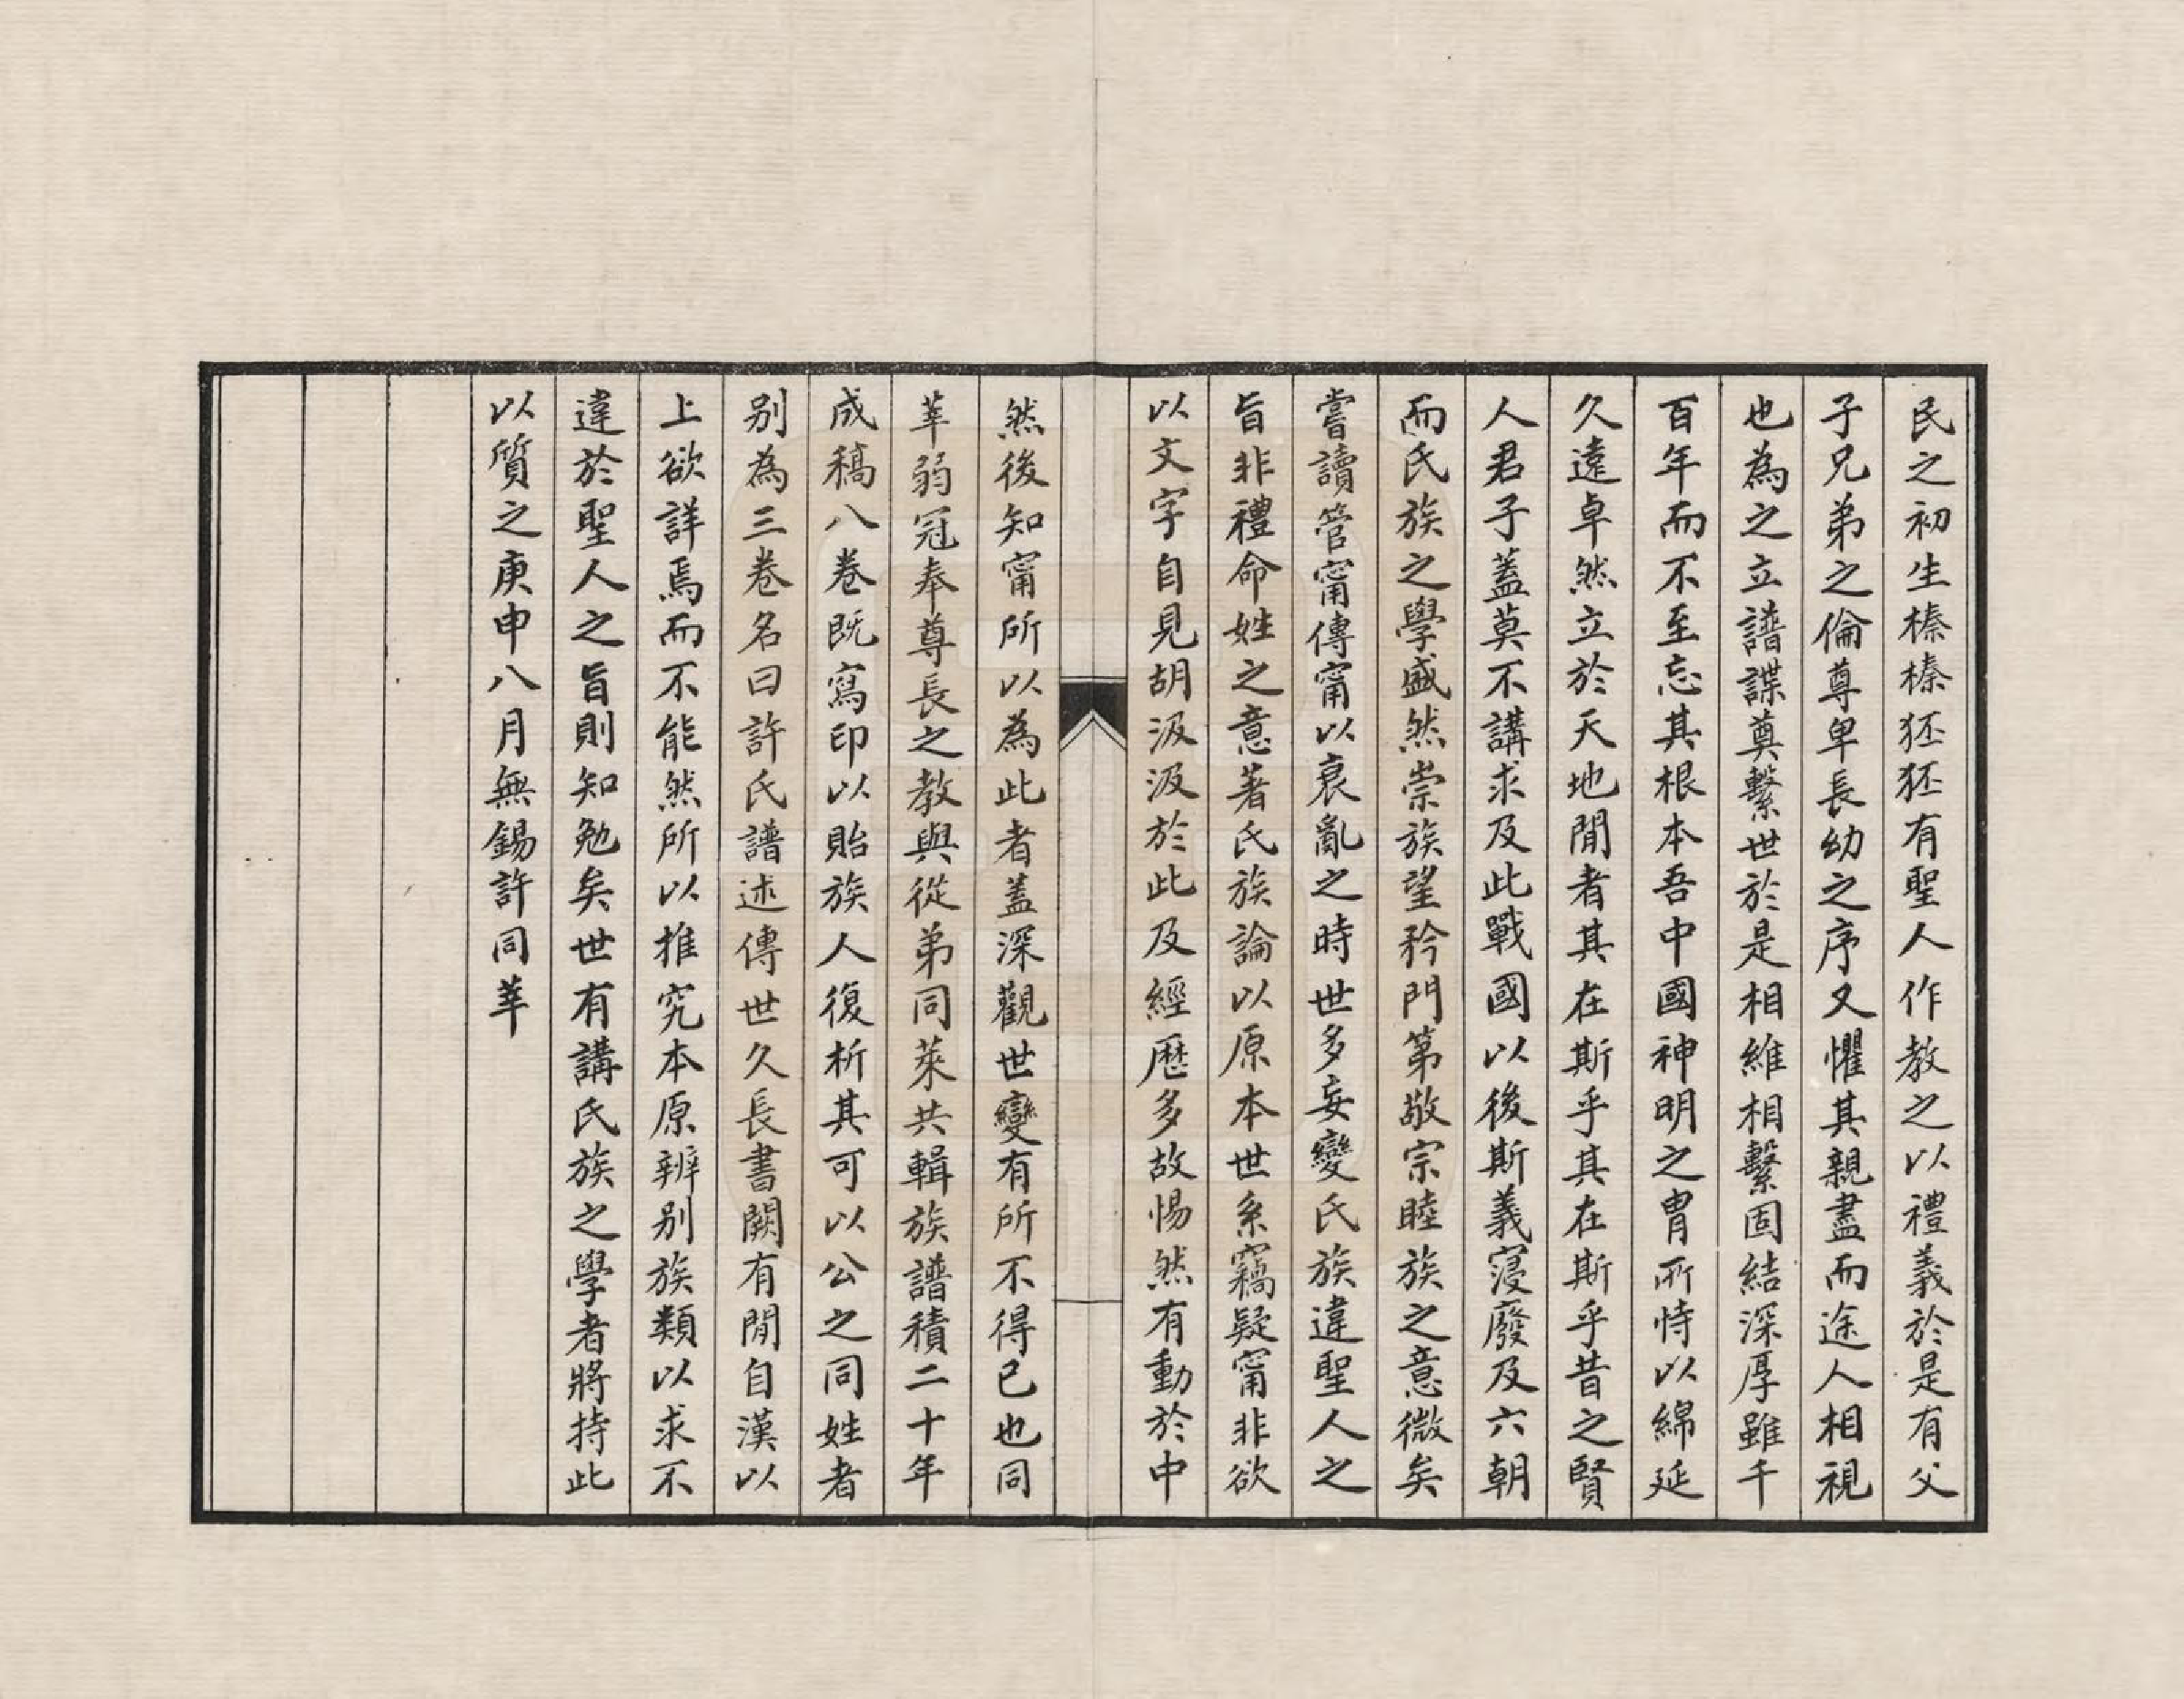 民之初生榛榛狉狉有聖人作教之以禮義於是有父
子兄弟之倫尊卑長幼之序又懼其親盡而途人相視
也為之立譜諜奠繫世於是相維相繫固結深厚雖千
百年而不至忘其根本吾中國神明之胄所恃以綿延
久遠卓然立於天地閒者其在斯乎其在斯乎昔之賢
人君子蓋莫不講求及此戰國以後斯義寖廢及六朝
而氏族之學盛然崇族望矜門第敬宗睦族之意微矣
嘗讀管甯傳甯以衰亂之時世多妄變氏族違聖人之
旨非禮命姓之意著氏族論以原本世系竊疑甯非欲
以文字自見胡汲汲於此及經歷多故惕然有動於中
然後知甯所以為此者蓋深觀世變有所不得已也同
莘弱冠奉尊長之教與從弟同萊共輯族譜積二十年
成稿八卷既寫印以貽族人復析其可以公之同姓者
別為三卷名曰許氏譜述傳世久長書闕有閒自漢以
上欲詳焉而不能然所以推究本原辨別族類以求不
違於聖人之旨則知勉矣世有講氏族之學者將持此
以質之庚申八月無錫許同莘